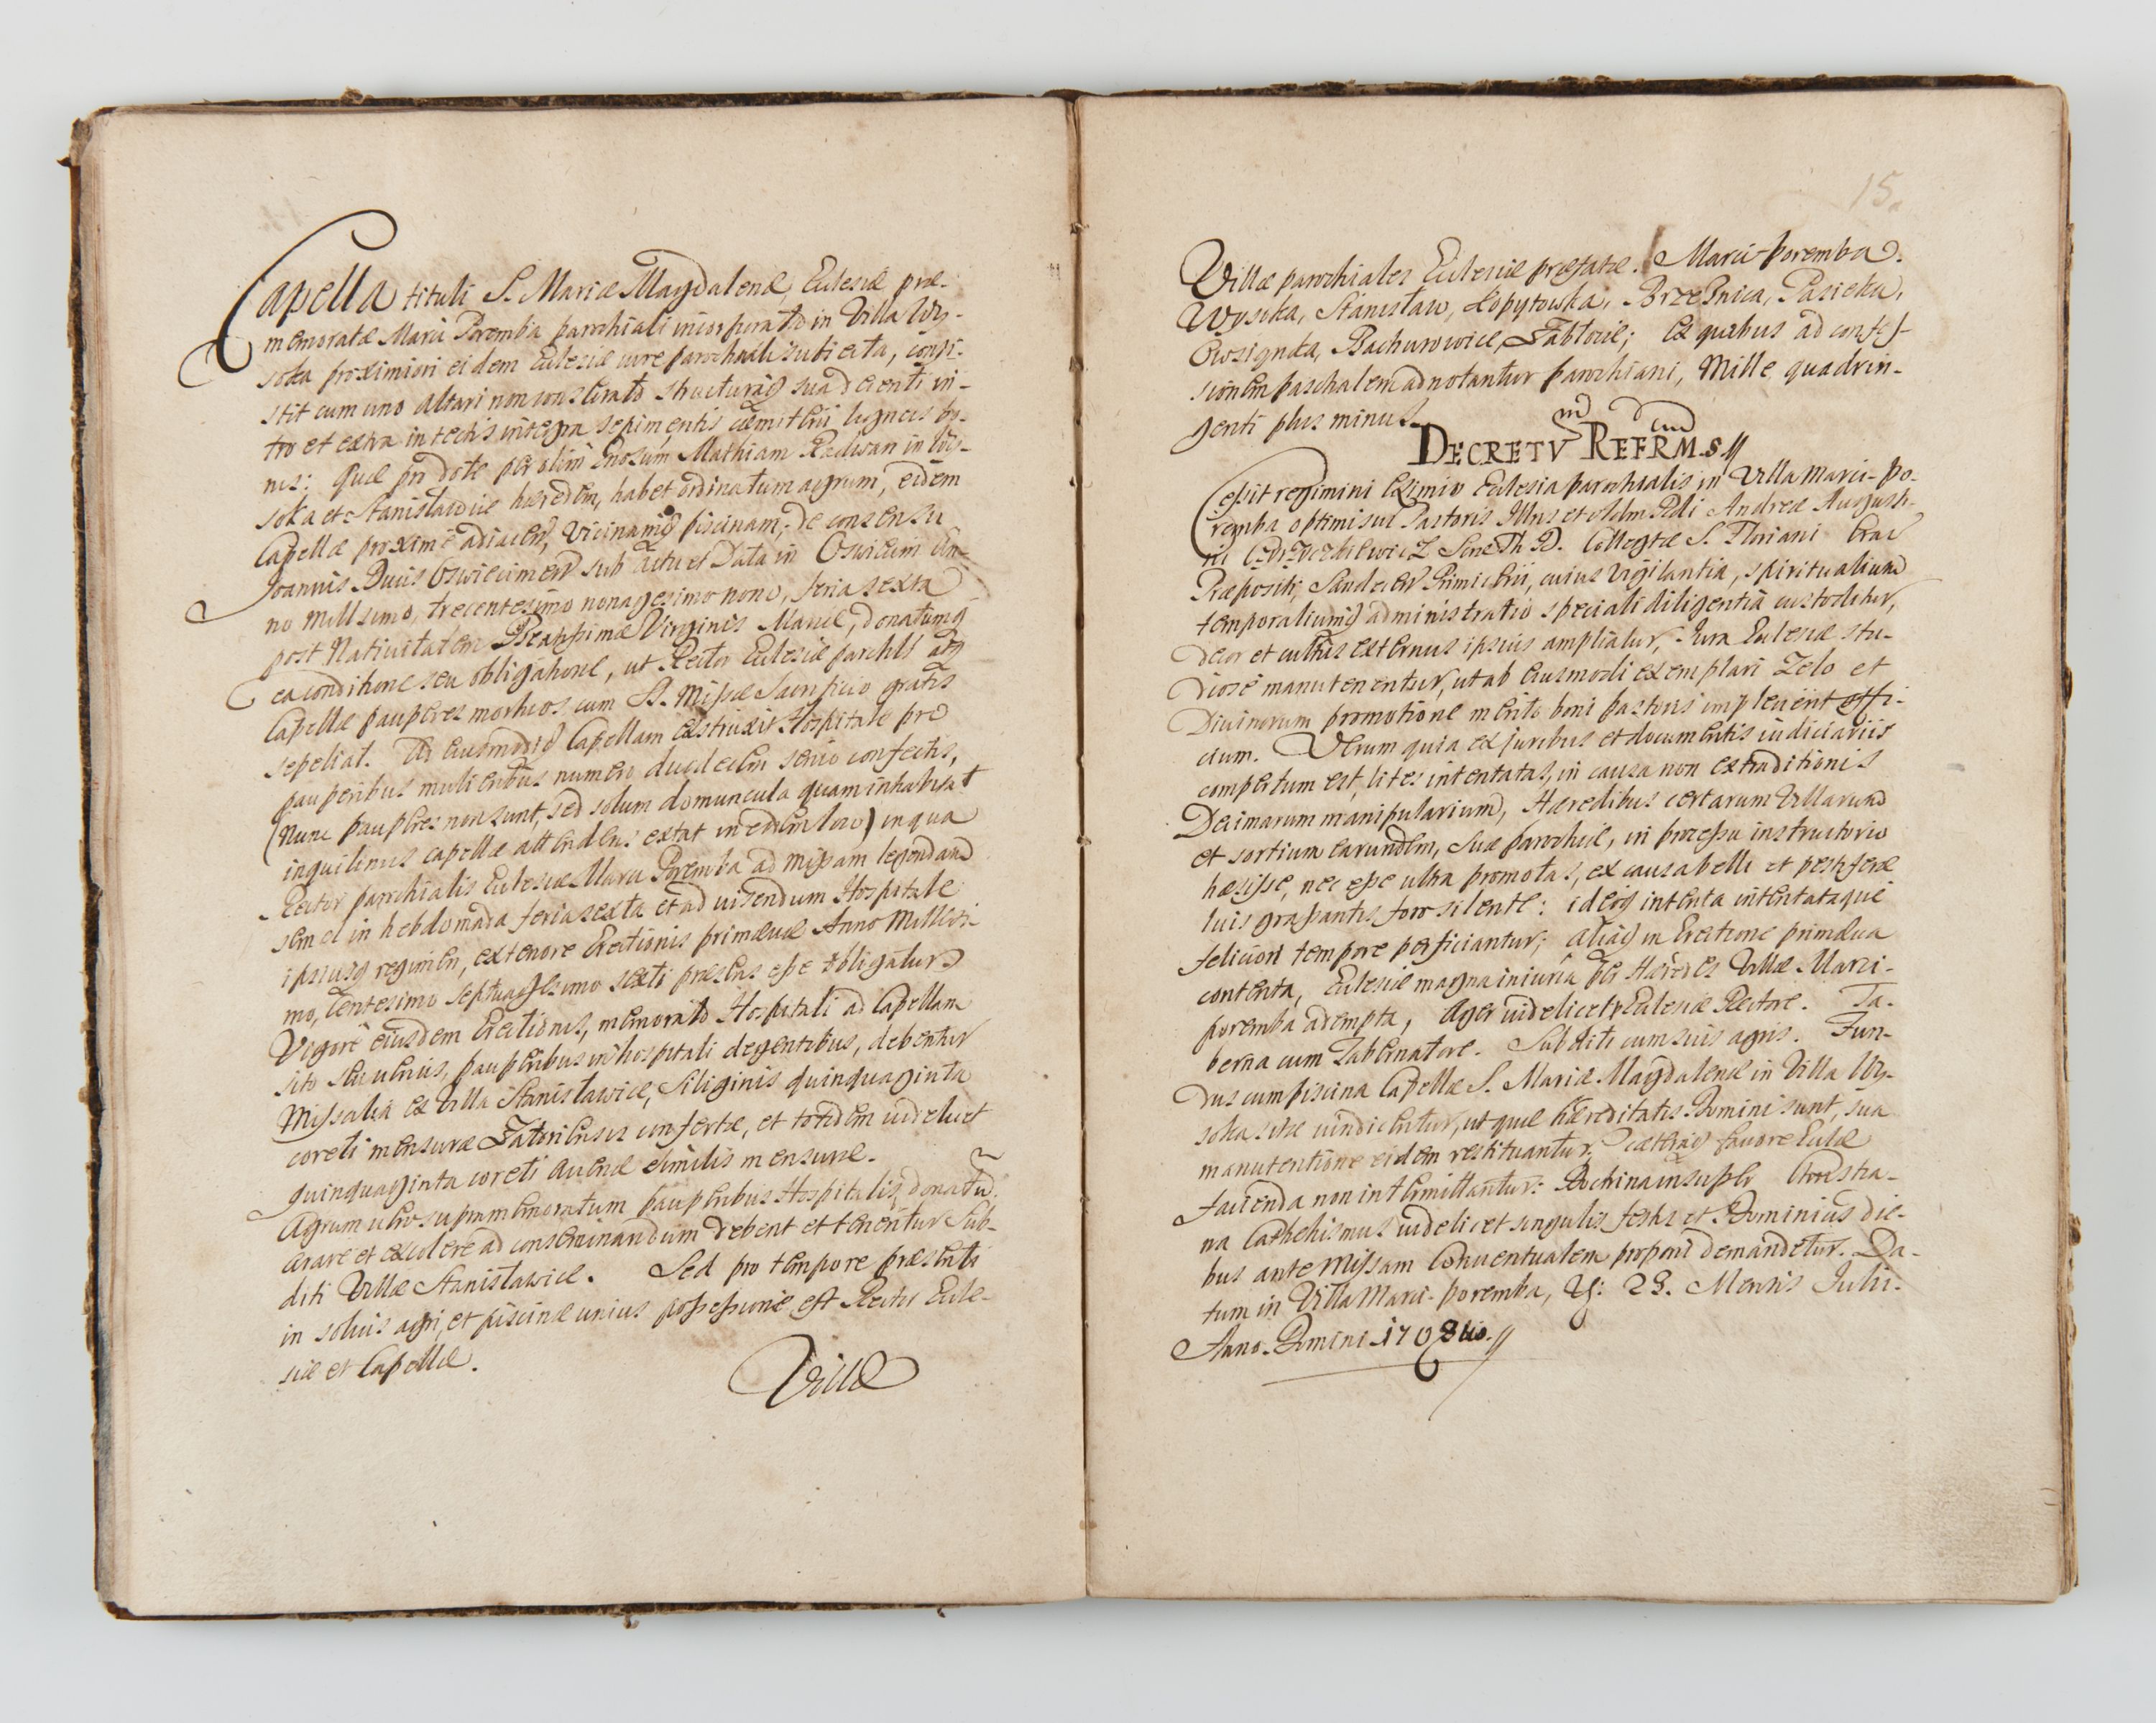 Capella tituli S. Mariæ Magdalenæ, Eclesiæ præ-
memoratæ Marci Poremba parochiali incorporata in Villa Wy-
soka proximiori eidem Eclesiæ iure parochiali subiecta, consi-
stit cum uno altari non conscerato structuraq sua decenti in-
tro et extra in tectis integra sepimentis cæmiterii ligneis bo-
nis: Quæ pro dote per olim Gnosum Mathiam Radwan in Wy-
soka et Stanislawice hæredem, habet ordinatum agrum, eidem
Capellæ proximè adiacen, Vicinamq piscinam, de consensu
Joannis Ducis Oswiecimen sub actu et Data in Oswiecim An-
no millsimo, trecentesimo nonagesimo nono, feria sexta
post Nativitatem Beatissimæ Virginis Mariæ, donatumq
ea conditione seu obligatione, ut Rector Eclesiæ parchlis atq
Capellæ pauperes mortuos cum S. Missæ Sacrificio gratis
sepeliat. Ad eiusmodi Capellam extruxit Hospitale pro
pauperibus mulieribus numero duodecim senio confectis,
(Nunc pauperes non sunt, sed solum domuncula quam inhabitat
inquilinus capellæ attendens extat in eodem loco) in qua
Rector parochialis Eclesiæ Marci Poremba ad missam legendam
semel in hebdomada feria sexta et ad visendum Hospitale
ipsiusq regimen, ex tenore Erectionis primævæ Anno Millesi-
mo, Centesimo septuagesimo sexto præsens esse obligatur.
Vigore eiusdem Erectionis, memorato Hospitali ad Capellam
sito pauperibus in hospitali degentibus, debentur
Missalia ex Villa Stanislawice, siliginis quinquaginta
coreti mensuræ Zatoriensis confertæ, et totidem videlicet
quinquaginta coreti avenæ similis mensuræ.
Agrum vero supramemoratum pauperibus Hospitalis donatu
arare et excolere ad conseminandum debent et tenentur Sub-
diti Villæ Stanislawice. Sed pro tempore præsenti
in solius agri, et piscinæ unius possessione est Rector Ecle-
siæ et Capellæ.
Villæ
15.
Villæ parochiales Eclesiæ præfatæ. Marci-poremba.
Wysoka, Stanislaw, Łopytowka, BrzeSnica, Pasieka,
Chrosignka, Bachurowice, ex quibus ad confes-
sionem paschalem adnotantur parochiani, Mille quadrin-
genti plus minus.
DECRETV REFRM.S
Cessit regimini Eximio Eclesia parochialis in Villa Marci-Po-
remba optimi sui Pastoris Illris et Adm Rdi Andreæ Augusti-
ni S. Th D. Collegtæ S. Floriani Crac
Præpositi, Sandecien Primicerii, cuius vigilantia, spiritualium
temporaliumq administratio speciali diligentiâ custoditur,
decor et cultus externus ipsius ampliatur, Jura Eclesiæ stu-
diosè manutenentur, ut ab eiusmodi exemplari Zelo et
Divinorum promotione merito boni pastoris impleverit offi-
cium. Verum quia ex juribus et documentis iudiciariis
compertum est, lites intentatas, in causa non extraditionis
Decimarum manipularium, Hæredibus certarum Villarum
et sortium earundem, suæ parochiæ, in processu instructorio
hæsisse, nec esse ultra promotas, ex causa belli et pestiferæ
luis grassantis foro silente: ideoq intenta intentataque
feliciori tempore perficiantur; aliaq in Erectione primæva
contenta, Eclesiæ magna iniuria per Hæredes Villæ Marci-
poremba adempta, Ager videlicet Eclesiæ Rectore. Ta-
berna cum Tabernatore. Subditi cum suis agris. Fun-
dus cum piscina Capellæ S. Mariæ Magdalenæ in Villa Wy-
soka sitæ vindicentur, ut quæ hæreditatis Domini sunt, sua
manutentione eidem restituantur, cæteraq favore Eclæ
facienda non intermittantur: Doctrina insuper Christia-
na Cathehismus videlicet singulis festis et Dominicis die-
bus ante Missam Conventualem proponi demandetur. Da-
tum in Villa Marci-poremba, 23. Mensis Julii.
Anno. Domini 1708